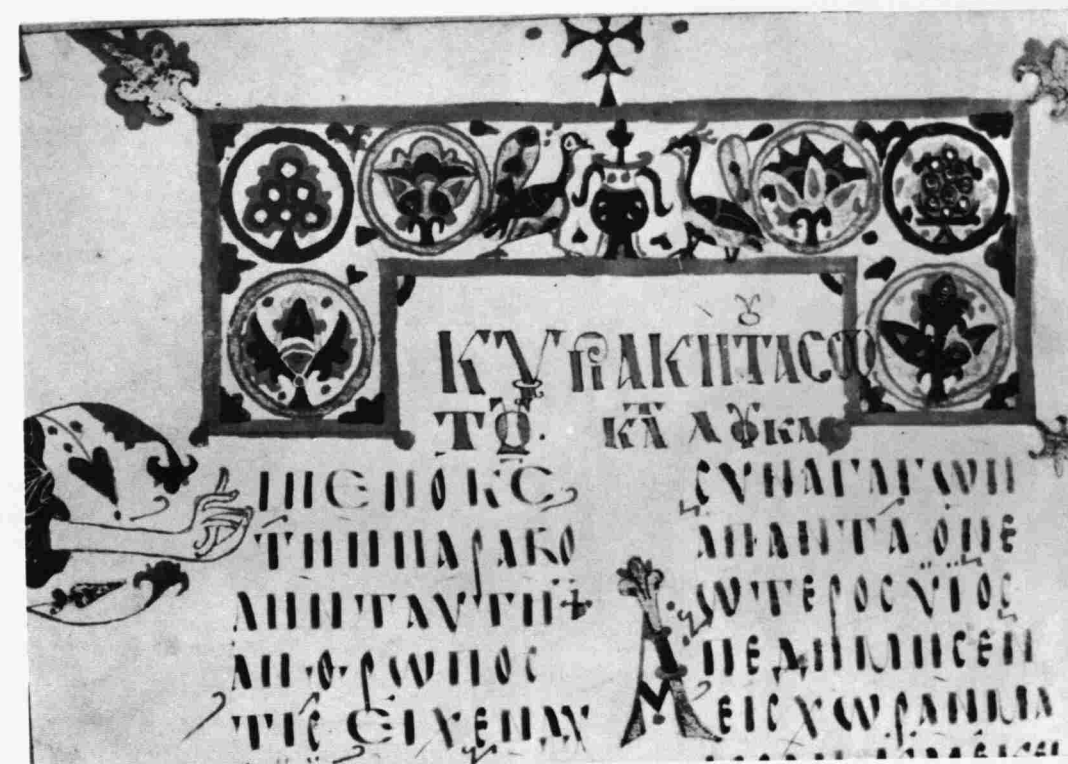 ΚΥΡΙΑΚΗ Τ̑ ΑϹΩ
ΤȢ ΚΑΤ ΛȢΚΑ
ΕΙΠΕΝ Ο ΚϹ
ΤΗΝ ΠΑΡΑΒΟ
ΛΗΝ ΤΑΥΤΗ+
ΑΝΘΡΩΠΟϹ
ΤΙϹ ΕΙΧΕΝ ΔΥ
ϹΥΝΑΓΑΓΩΝ
ΑΠΑΝΤΑ Ο ΝΕ
ΩΤΕΡΟϹ ΥΙΟϹ
ΑΠΕΔΗΜΗϹΕΝ
ΕΙϹ ΧΩΡΑΝ ΜΑ